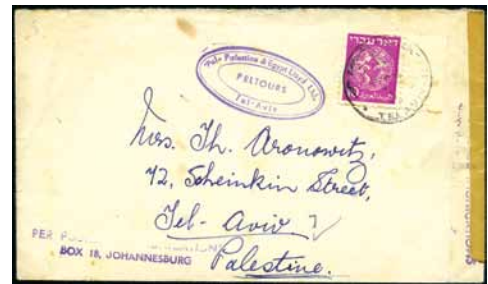 Palestine & Egypt Lloyd Ltd.
PELTOURS
Tel-Aviv
דואר עברי
Mrs. Th. Aronowitz,
72, Scheinkin Street,
Tel-Aviv
Palestine.
PER
BOX 18, JOHANNESBURG